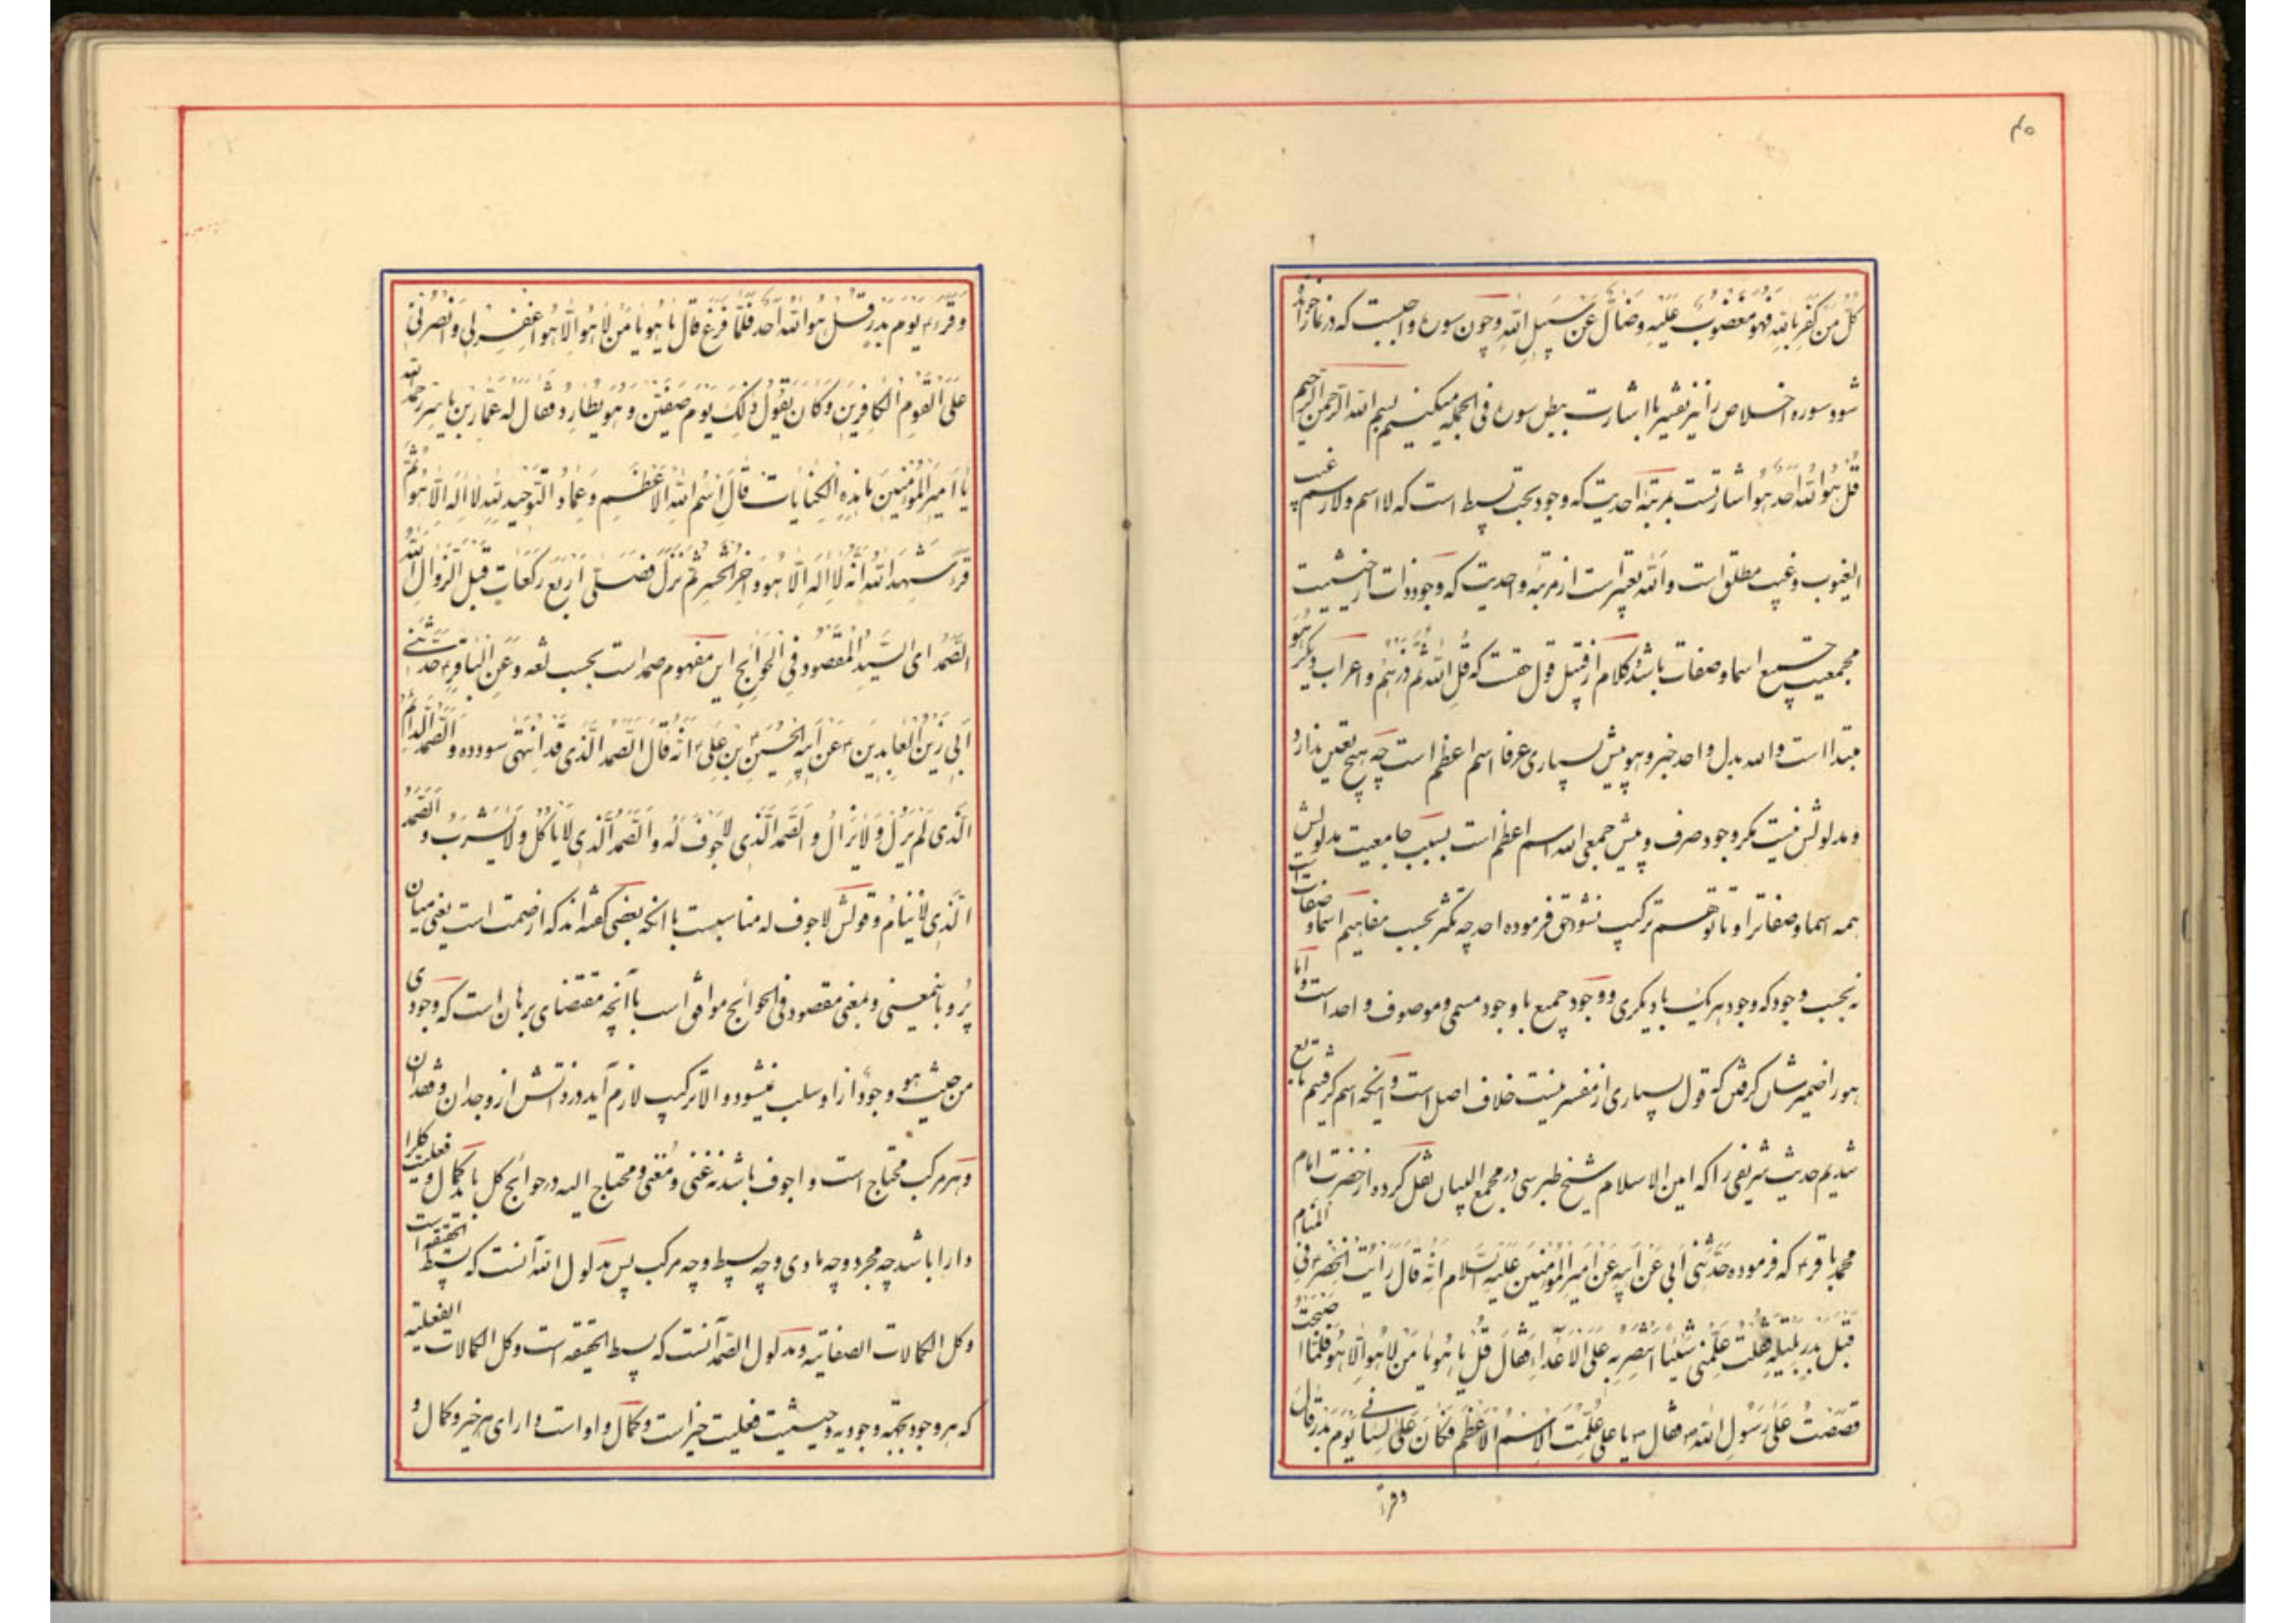 ۴۵
كُلُّ مَنْ كَفَرَ بِاللهِ فَهُوَ مَغْضُوبٌ عَلَيْهِ وَضَالٌّ عَنْ سَبِيلِ اللهِ وچون سوره واجبست که در نماز خوانده
شود سوره اخلاص را نیز تفسیر با اشارت ببطن سوره فی الجمله میکنیم بسم الله الرحمن الرحیم
قُلْ هُوَ اللهُ اَحَد هُوَ اشارتست بمرتبۀ احدیت که وجود بحت بسیط است که لا اسم ولا رسم غیب
الغیوب وغیب مطلق است والله تعبیر است از مرتبۀ واحدیت که وجود ذات از حیثیت
مجمعیت جمیع اسما وصفات باشد وکلام از قبیل قول حقست که قُلِ اللهُ ثُمَّ ذَرْهُمْ واعراب دیگر هُوَ
مبتدا است والله بدل واحد خبر وهو پیش بسیاری عرفا اسم اعظم است چه هیچ تعین ندارد
ومدلولش نیست مکر وجود صرف وپیش جمعی الله اسم اعظم است بسبب جامعیت مدلولش
همه اسما وصفاترا وتا توهم ترکیب نشود حق فرموده احد چه تکثر بحسب مفاهیم اسما وصفات است
نه بحسب وجود که وجود هر یک با دیکری ووجود جمیع با وجود مسمی وموصوف واحد است واما
هو را ضمیر شان کرفتن که قول بسیاری از مفسرینست خلاف اصل است وانکه اسم کرفتیم تابع
شدیم حدیث شریفی را که امین الاسلام شیخ طبرسی در مجمع البیان نقل کرده از حضرت امام
محمد باقر ع که فرموده حَدَّثَنِی اَبِی عَنْ اَبِیهِ عَنْ اَمِیرِ الْمُؤْمِنِینَ عَلَیْهِ السَّلام اَنَّهُ قالَ رَاَیْتُ الْخِضْرَ ع فِی الْمَنامِ
قَبْلَ بَدْرٍ بِلَیْلَةٍ فَقُلْتُ عَلِّمْنِی شَیْئاً اَنْتَصِرُ بِهِ عَلَی الْاَعْداءِ فَقالَ قُلْ یا هُوَ یا مَنْ لا هُوَ اِلّا هُوَ فَلَمّا اَصْبَحْتُ
قَصَصْتُ عَلی رَسُولِ اللهِ ص فقال ص یا علی عُلِّمْتَ الْاِسْمَ الْاَعْظَمَ فَکانَ عَلی لِسانِی یَوْمَ بَدْرٍ قالَ
وقرأ
وَقَرَءَ ع یَوْمَ بَدْرٍ قُلْ هُوَ اللهُ اَحَد فَلَمّا فَرَغَ قالَ یا هُوَ یا مَنْ لا هُوَ اِلّا هُوَ اغْفِرْ لِی وَانْصُرْنِی
عَلَی الْقَوْمِ الْکافِرِینَ وَکانَ یَقُولُ ذلِکَ یَوْمَ صِفِّینَ وَهُوَ یُطارِدُ فَقالَ لَهُ عَمّارُ بْنُ یاسِرٍ رحمه الله
یا اَمِیرَ الْمُؤْمِنِینَ ما هذِهِ الْکِنایاتُ قالَ اِسْمُ اللهِ الْاَعْظَمِ وَعِمادُ التَّوْحِیدِ لِلّهِ لا اِلهَ اِلّا هُوَ ثُمَّ
قَرَءَ شَهِدَ اللهُ اَنَّهُ لا اِلهَ اِلّا هُوَ وَاخِرَ الْحَشْرِ ثُمَّ نَزَلَ فَصَلّی اَرْبَعَ رَکَعاتٍ قَبْلَ الزَّوالِ اَللهُ
الصَّمَدُ ای السَّیِّدُ الْمَقْصُودُ فِی الْحَوائِجِ این مفهوم صمد است بحسب لغه وَعَنِ الْباقِرِ ع حَدَّثَنِی
اَبِی زَیْنُ الْعابِدِینَ ع عَنْ اَبِیهِ الْحُسَیْنِ بْنِ عَلِیٍّ ع اَنَّهُ قالَ الصَّمَدُ الَّذِی قَدِ انْتَهی سودده وَالصَّمَدُ الدّائِمُ
الَّذِی لَمْ یَزَلْ وَلا یَزالُ وَالصَّمَدُ الَّذِی لا جَوْفَ لَهُ وَالصَّمَدُ الَّذِی لا یَأْکُلُ وَلا یَشْرَبُ وَالصَّمَدُ
الَّذِی لا یَنامُ وقولش لا جوف له مناسبست با انکه بعضی کفته اند که از صمت است یعنی میان
پُر وباینمعنی وبمعنی مقصود فی الحوائج موافق است با آنچه مقتضای برهان است که وجودی
من حیث هو وجود از او سلب نمیشود والا ترکیب لازم آید در ذاتش از وجدان وفقدان
وهر مرکب محتاج است واجوف باشد نه غنی ومُغنی ومحتاج الیه در حوائج کل باید کمال وفعلیت کلرا
دارا باشد چه مجرد وچه مادی وچه بسیط وچه مرکب پس مدلول الله آنست که بسیط الحقیقه است
وکل الکمالات الصفاتیه ومدلول الصمد آنست که بسیط الحقیقه است وکل الکمالات الفعلیه
که هر وجود بجهه وجودیه وحیثیت فعلیت خیر است وکمال واو است دارای هر خیر وکمال و